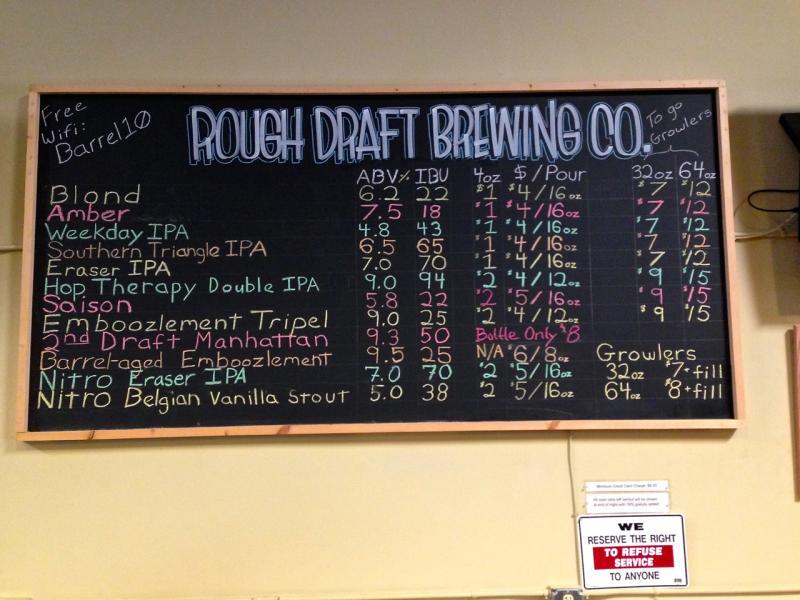 Free
Wifi:
Barrel10
ROUGH DRAFT BREWING CO.
To go
Growlers
ABV% IBU 4oz $/Pour 32oz 64oz
Blond 6.2 22 $1 $4/16oz $7 $12
Amber 7.5 18 $1 $4/16oz $7 $12
Weekday IPA 4.8 43 $1 $4/16oz $7 $12
Southern Triangle IPA 6.5 65 $1 $4/16oz $7 $12
Eraser IPA 7.0 70 $1 $4/16oz $7 $12
Hop Therapy Double IPA 9.0 94 $2 $4/12oz $9 $15
Saison 5.8 22 $2 $5/16oz $9 $15
Emboozlement Tripel 9.0 25 $2 $4/12oz $9 $15
2nd Draft Manhattan 9.3 50 Bottle Only $8
Barrel-aged Emboozlement 9.5 25 N/A $6/8oz
Nitro Eraser IPA 7.0 70 $2 $5/16oz
Nitro Belgian Vanilla Stout 5.0 38 $2 $5/16oz
Growlers
32oz $7+fill
64oz $8+fill
Minimum Credit Card Charge
WE
RESERVE THE RIGHT
TO REFUSE
SERVICE
TO ANYONE